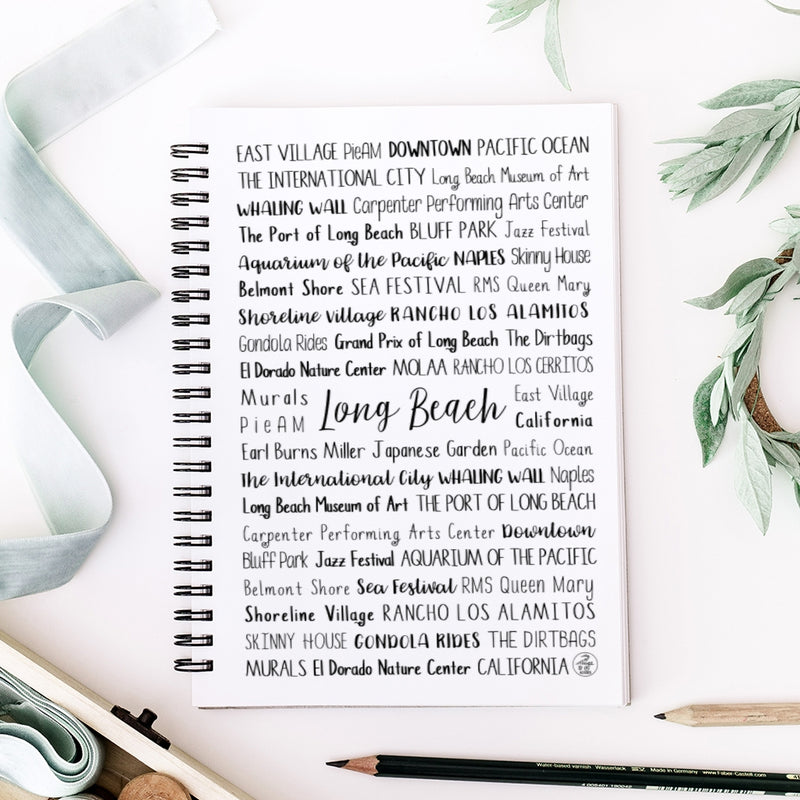 EAST VILLAGE PieAM DOWNTOWN PACIFIC OCEAN
THE INTERNATIONAL CITY Long Beach Museum of Art
WHALING WALL Carpenter Performing Arts Center
The Port of Long Beach BLUFF PARK Jazz Festival
Aquarium of the Pacific NAPLES Skinny House
Belmont Shore SEA FESTIVAL RMS Queen Mary
Shoreline Village RANCHO LOS ALAMITOS
Gondola Rides Grand Prix of Long Beach The Dirtbags
El Dorado Nature Center MOLAA RANCHO LOS CERRITOS
Murals
PieAM
Long Beach
East Village
California
Earl Burns Miller Japanese Garden Pacific Ocean
The International City WHALING WALL Naples
Long Beach Museum of Art THE PORT OF LONG BEACH
Carpenter Performing Arts Center Downtown
Bluff Park Jazz Festival AQUARIUM OF THE PACIFIC
Belmont Shore Sea Festival RMS Queen Mary
Shoreline Village RANCHO LOS ALAMITOS
SKINNY HOUSE GONDOLA RIDES THE DIRTBAGS
MURALS El Dorado Nature Center CALIFORNIA
Water-based varnish Wasserlack Made in Germany www.Faber-Castell.com